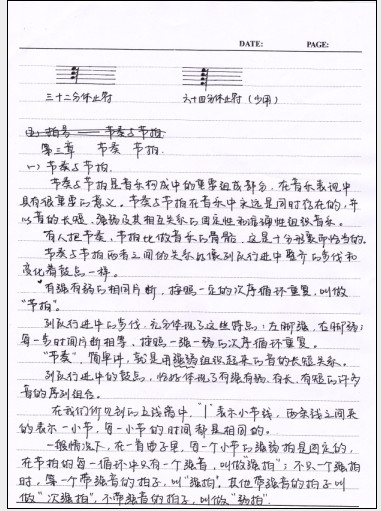 DATE: PAGE:
三十二分休止符 六十四分休止符（少用）
四、拍号——节奏与节拍
第三章 节奏 节拍.
一) 节奏与节拍.
节奏与节拍是音乐构成中的重要组成部分，在音乐表现中
具有很重要的意义。节奏与节拍在音乐中永远是同时存在的，并
以音的长短、强弱及其相互关系的固定性和准确性组织音乐。
有人把节奏、节拍比做音乐的骨骼，这是十分形象而恰当的。
节奏与节拍两者之间的关系就像列队行进中整齐的步伐和
变化着鼓点一样。
有强有弱的相同片断，按照一定的次序循环重复，叫做
“节拍”。
列队行进中的步伐，充分体现了这些特点：左脚强，右脚弱；
每一步时间片断相等，按照一强一弱的次序循环重复。
“节奏”，简单讲，就是用强弱组织起来的音的长短关系。
列队行进中的鼓点，恰好体现了有强有弱，有长、有短的许多
音的序列组合。
在我们所见到的五线谱中，“｜”表示小节线，两条线之间夹
的表示一小节，每一小节的时间都是相同的。
一般情况下，在一首曲子里，每一个小节的强弱拍是固定的，
在节拍的每一循环中只有一个强音，叫做“强拍”；不只一个强拍
时，第一个带强音的拍子，叫“强拍”，其他带强音的拍子叫
做“次强拍”，不带强音的拍子，叫做“弱拍”.